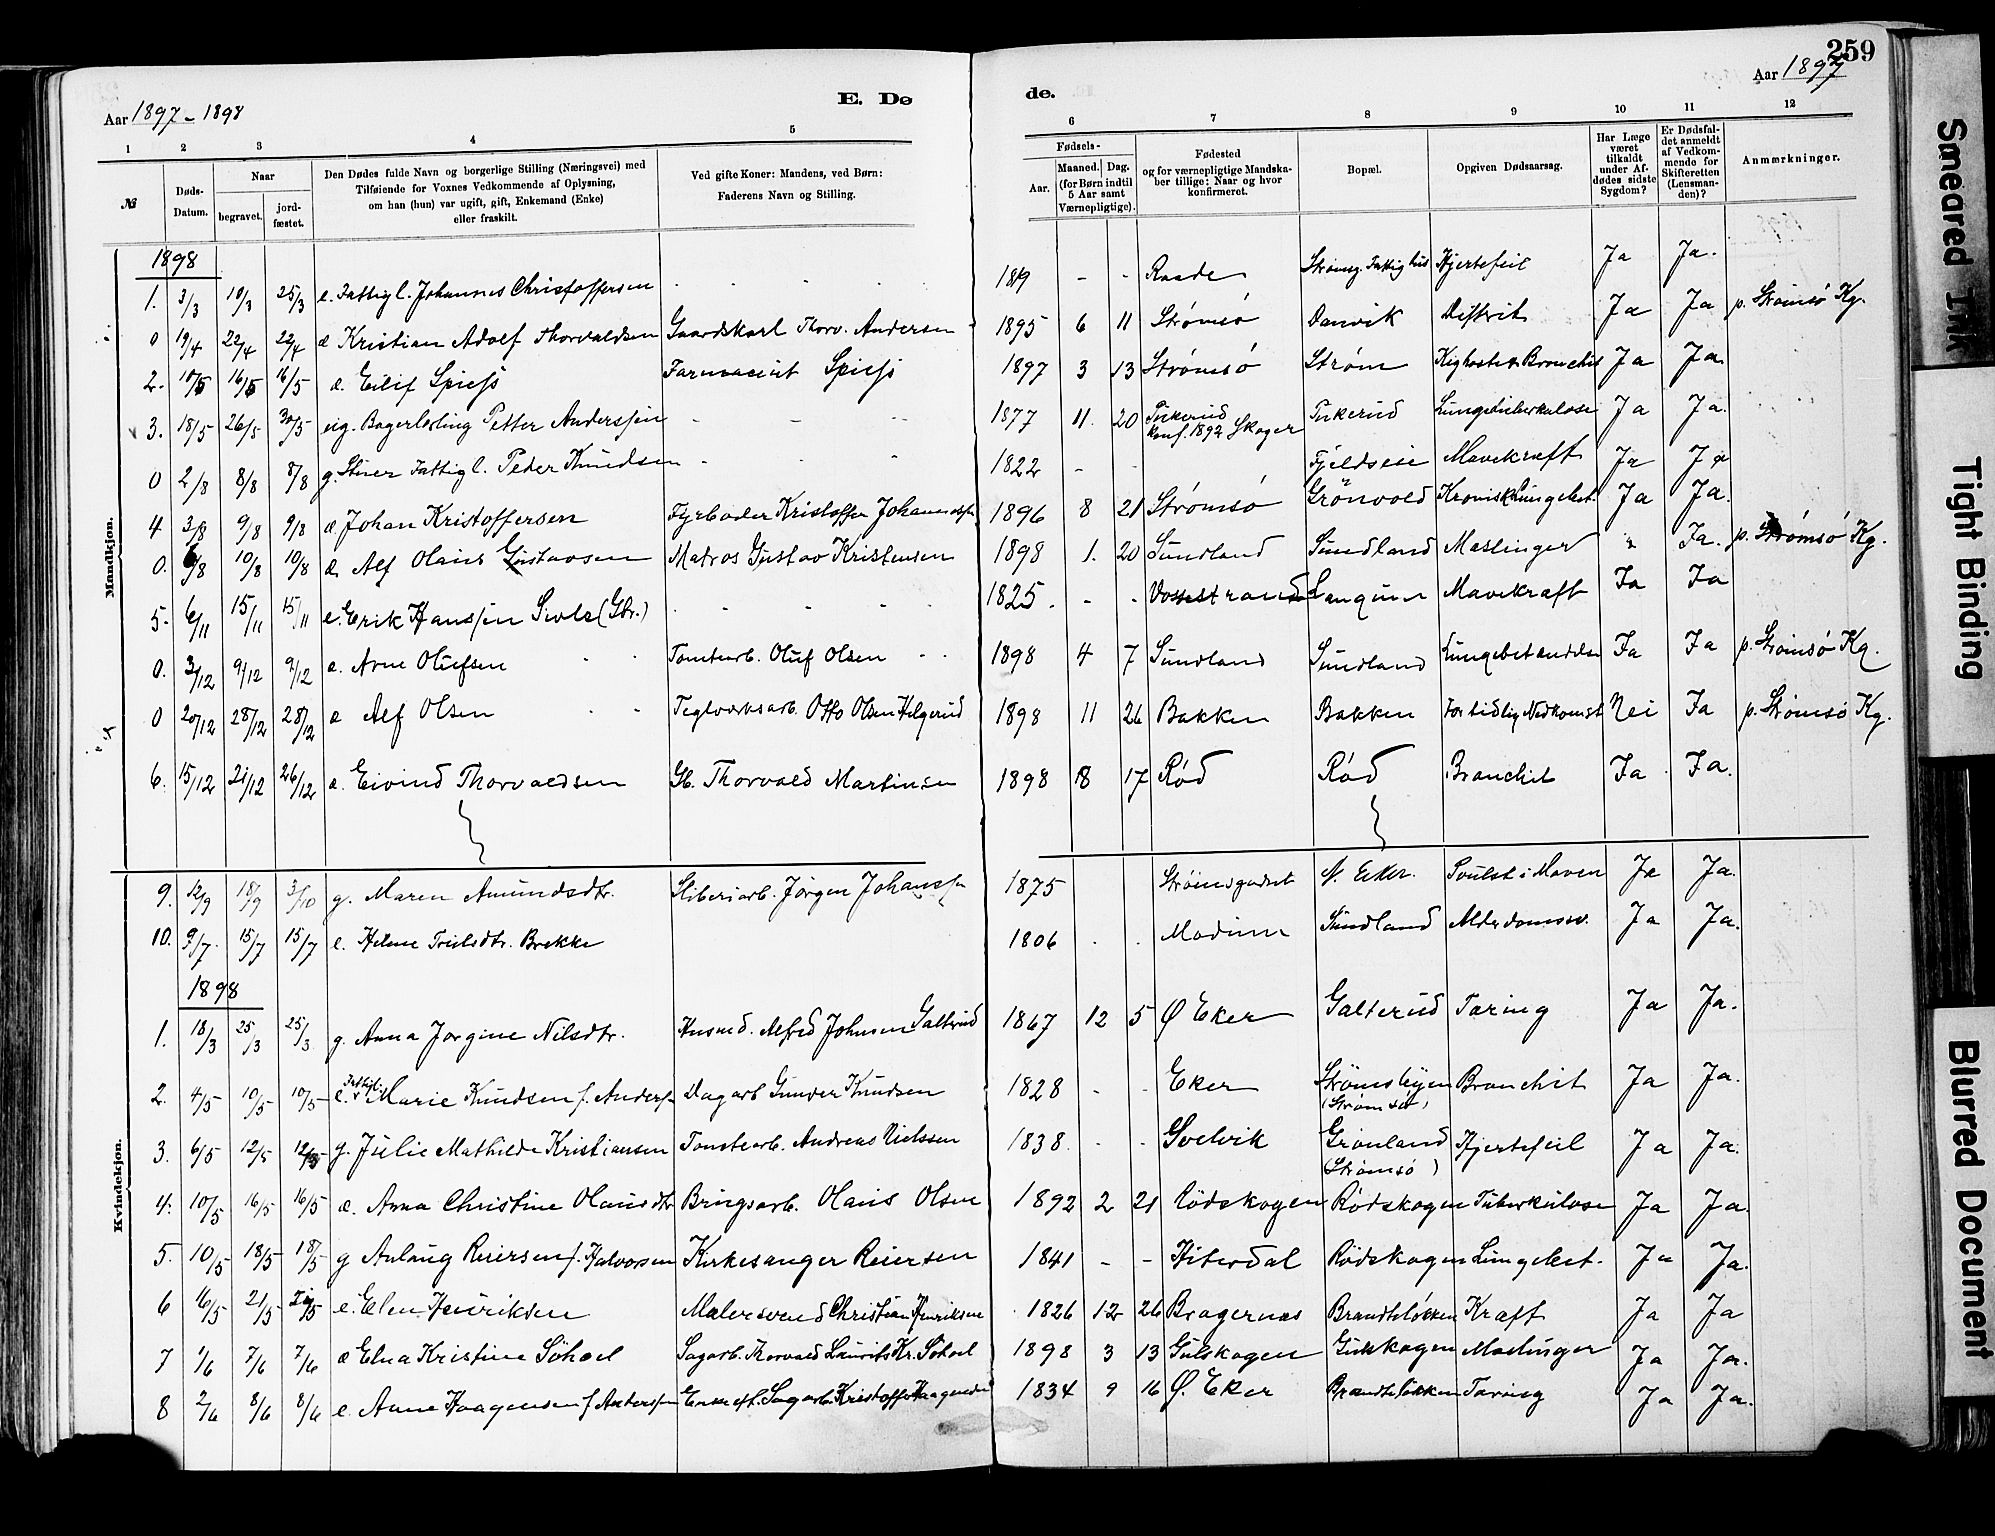 259
Aar 1897 - 1898
E. Dø
de.
Aar 1897
1 2 3 4 5 6 7 8 9 10 11 12
№
Døds-Datum.
Naar
begravet.
jord-fæstet.
Den Dødes fulde Navn og borgerlige Stilling (Næringsvei) med
Tilføiende for Voxnes Vedkommende af Oplysning,
om han (hun) var ugift, gift, Enkemand (Enke)
eller fraskilt.
Ved gifte Koner: Mandens, ved Børn:
Faderens Navn og Stilling.
Fødsels-
Aar.
Maaned. Dag.
(for Børn indtil
5 Aar samt
Værnepligtige).
Fødested
og for værnepligtige Mandska-
ber tillige: Naar og hvor
konfirmeret.
Bopæl.
Opgiven Dødsaarsag.
Har Læge
været
tilkaldt
under Af-
dødes sidste
Sygdom?
Er Dødsfal-
det anmeldt
af Vedkom-
mende for
Skifteretten
(Lensman-
den)?
Anmærkninger.
Mandkjøn.
1898
1. 3/3 10/3 25/3 e. Fattigl. Johannes Christoffersen - - - 1819 - - Raade Strømsg. Fattighus Hjertefeil Ja Ja.
0 19/4 22/4 22/4 æ Kristian Adolf Thorvaldsen Gaardskarl Thorv. Andersen 1895 6 11 Strømsö Danvik Difterit Ja Ja p. Strömsö Kg.
2. 10/5 16/5 16/5 æ. Eilif Spiess Farmaceut Spiess 1897 3 13 Strömsö Strøm Kighoste & Bronchit Ja Ja.
3. 18/5 26/5 30/5 ug. Bagerlærling Petter Anderssen - - - 1877 11. 20 konf. 1892 Skoger Lungetuberkulose Ja Ja.
0 2/8 8/8 8/8 g. Fattigl. Peder Knudsen - - - 1822 - - Fjeldseie Mavekræft Ja Ja
4 3/8 9/8 9/8 æ Johan Kristoffersen Fyrbøder Kristoffer 1896 8 21 Strömsö Grönvold Kronisk Lungebet. Ja Ja.
0. 6/8 10/8 10/8 æ Alf Olaus Gustavsen Matros Gustav Kristensen 1898 1. 20 Sundland Sundland Mæslinger " Ja. p. Strömsö Kg.
5. 6/11 15/11 15/11 e. Erik Hanssen (Gbr.) - - - 1825. - - Vossestrand Mavekræft Ja Ja
0. 3/12 9/12 9/12 æ. Arne Olufsen Tomtearb. Oluf Olsen 1898 4 7 Sundland Sundland Lungebetændelse Ja Ja p. Strömsö Kg.
0 20/12 28/12 28/12 æ Alf Olsen Teglverksarb. Otto Olsen Helgerud 1898 11 26 Bakken Bakken For tidlig Nedkomst Nei Ja p. Strömsö Kg.
6. 15/12 21/12 26/12 æ. Eivind Thorvaldsen Gb. Thorvald Martinsen 1898 8 17 Rød Rød Bronchit Ja Ja.
Kvindekjøn.
9. 12/9 18/9 3/10 g. Maren Amundsdtr. Sliberiarb. Jørgen Johanss. 1875 Strömsgodset N. Eker. i Maven Ja Ja.
10. 9/7. 15/7 15/7 e. Helene Brekke 1806 - - Modum Sundland Alderdomssv. Ja Ja.
1898
1. 18/3 25/3 25/3 g. Anna Jorgine Nilsdtr. Husmd. Alfred Johnsen Galterud 1867 12 5 Ø Eker Galterud Tæring Ja Ja.
2. 4/5 10/5 10/5 e. Fattigl. Marie Knudsen f. Anders. Dagarb Gunder Knudsen 1828 - - Eker Strömshöien (Strömsö) Bronchit Ja Ja.
3. 6/5 12/5 12/5 g. Julie Mathilde Kristiansen Tomtearb. Andreas Nielssen 1838. - - Svelvik Grönland (Strömsö) Hjertefeil Ja Ja.
4. 10/5 16/5 16/5 æ. Anna Christine Olausdtr Brugsarb. Olaus Olsen 1892 2 21 Rödskogen Rödskogen Tuberkulose Ja Ja
5. 10/5 18/5 18/5 g Aslaug Reiersen f. Halvorsen Kirkesanger Reiersen 1841 - - Hiterdal Rödskogen Lungebet. Ja Ja.
6 16/5 21/5 21/5 e. Elen Henriksen Malersvend Christian Henriksen 1826 12 26 Bragernæs Brandteløkken Kræft Ja Ja
7 1/6 7/6 7/6 æ Elna Kristine Söhoel Sagarb. Thorvald Laurits Kr. Söhoel 1898 3 13 Gulskogen Gulskogen Mæslinger Ja Ja.
8 2/6 8/6 8/6 e. Anne Haagensen f Anderssen Enke eft. Sagarb. Kristoffer Haagensen 1834 9 16 Ø. Eker Brandteløkken Tæring Ja Ja.
Smeared Ink
Tight Binding
Blurred Document